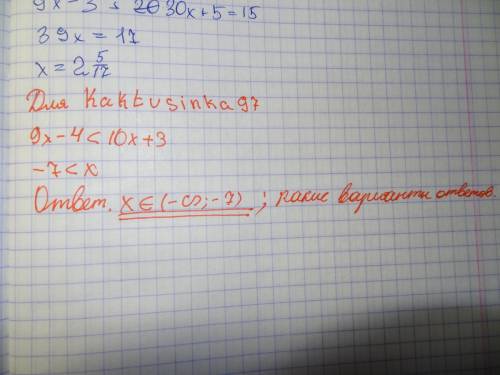 9x-3+30x+5=15
39x=17
x=2 5/17
Для Kaktusinka97
9x-4<10x+3
-7<x
Ответ. x∈(-∞;-7) ; такие варианты ответов.